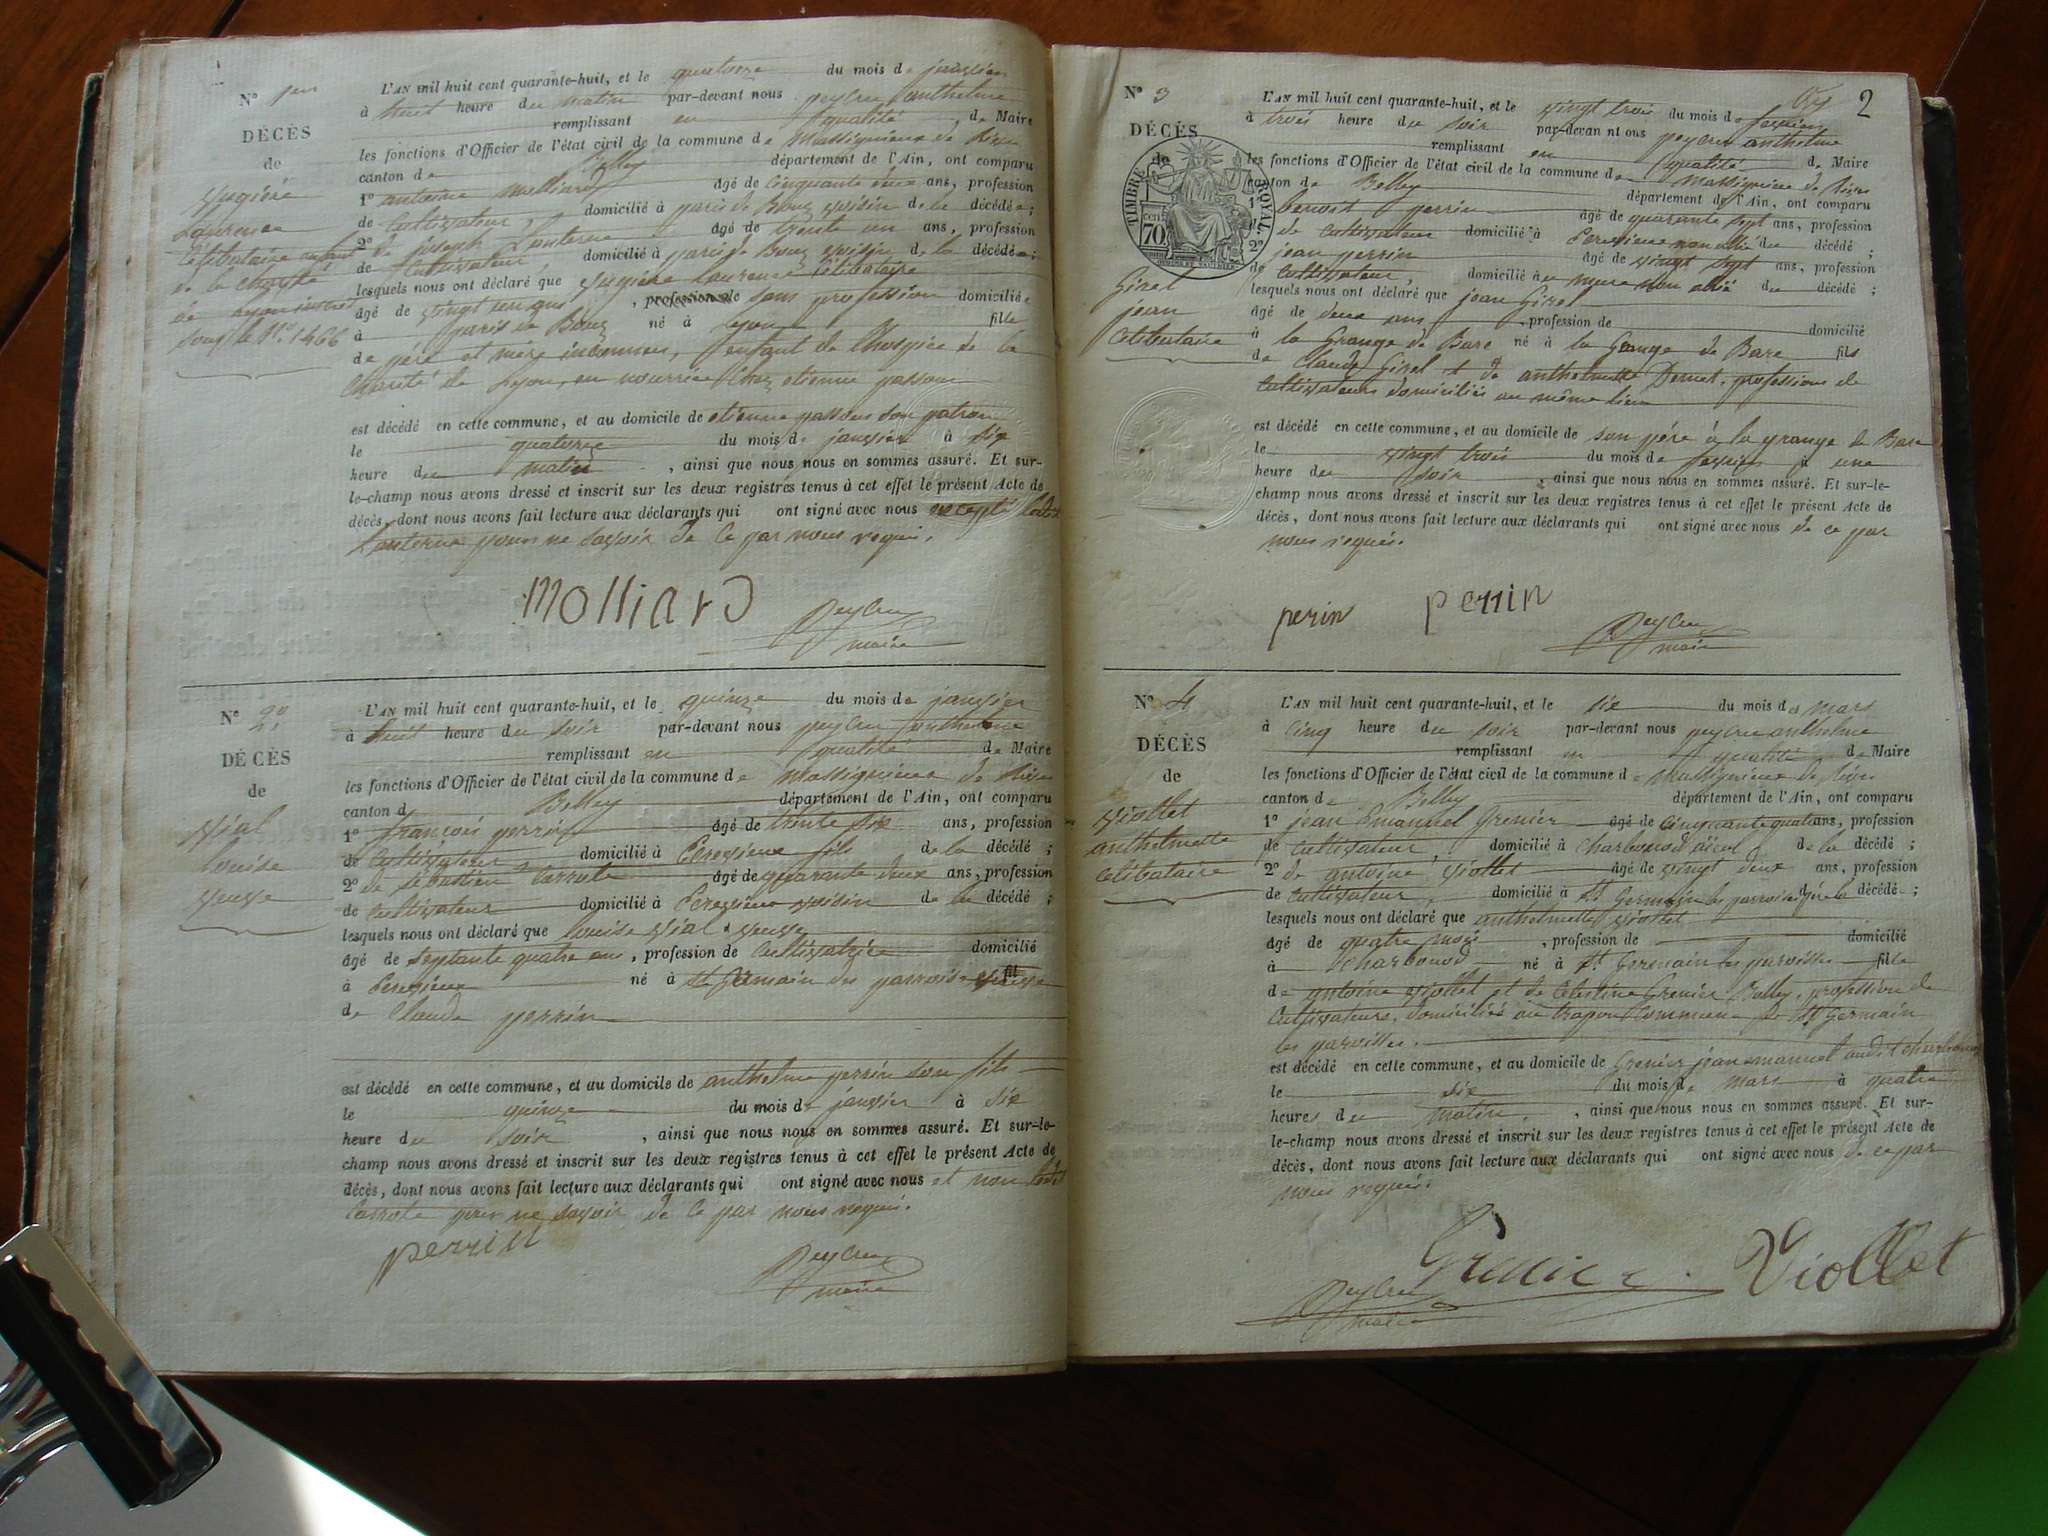 N° 1er
DÉCÈS
de
Laurence
Célibataire enfant
de la charité
de Lyon inscrit
sous le N°. 1466
L'AN mil huit cent quarante-huit, et le quatorze du mois de janvier
à huit heure du matin par-devant nous peycru anthelme
remplissant en qualité de Maire
les fonctions d'Officier de l'état civil de la commune de Massignieu de Rives
canton de Belley département de l'Ain, ont comparu
1° antoine Molliard âgé de cinquante deux ans, profession
de Cultivateur, domicilié à voisin de la décédée;
2° de joseph Lanterne âgé de trente un ans, profession
de Cultivateur, domicilié à voisin de la décédée;
lesquels nous ont déclaré que Laurence Célibataire
âgé de vingt un ans, profession de sans profession domiciliée
à né à Lyon fille
de père et mère inconnus, enfant de l'hospice de la
charité de Lyon, en nourrice chez etienne passon
est décédé en cette commune, et au domicile de etienne passon son patron
le quatorze du mois de janvier à six
heure du matin, ainsi que nous nous en sommes assuré. Et sur-
le-champ nous avons dressé et inscrit sur les deux registres tenus à cet effet le présent Acte de
décès, dont nous avons fait lecture aux déclarants qui ont signé avec nous excepté ledit
Lanterne pour ne savoir de ce par nous requis.
Molliard
Peycru
maire
N° 2
DÉCÈS
de
Vial
Louise
veuve
L'AN mil huit cent quarante-huit, et le quinze du mois de janvier
à huit heure du soir par-devant nous peycru anthelme
remplissant en qualité de Maire
les fonctions d'Officier de l'état civil de la commune de Massignieu de Rives
canton d Belley département de l'Ain, ont comparu
1° françois perrin âgé de trente six ans, profession
de Cultivateur domicilié à Cressieu fils de la décédé;
2° de sébastien Carrote âgé de quarante deux ans, profession
de cultivateur domicilié à Cressieu voisin de la décédé;
lesquels nous ont déclaré que Louise Vial veuve
âgé de septante quatre ans, profession de Cultivatrice domicilié
à Cressieu né à St Germain les paroisses veuve
de Claude perrin
est décédé en cette commune, et au domicile de anthelme perrin son fils
le quinze du mois de janvier à six
heure du soir, ainsi que nous nous en sommes assuré. Et sur-le-
champ nous avons dressé et inscrit sur les deux registres tenus à cet effet le présent Acte de
décès, dont nous avons fait lecture aux déclarants qui ont signé avec nous et non ledit
Carrote pour ne savoir de ce par nous requis.
perrin
Peycru
maire
2
N° 3
DÉCÈS
de
TIMBRE ROYAL
70 cen
Girel
jean
Célibataire
L'AN mil huit cent quarante-huit, et le vingt trois du mois de fevrier
à trois heure du soir par-devan nt ous peycru anthelme
remplissant en qualité de Maire
les fonctions d'Officier de l'état civil de la commune de Massignieu de Rives
canton de Belley département de l'Ain, ont comparu
1° benoit perrin âgé de quarante sept ans, profession
de cultivateur domicilié à Cressieu non allié du décédé;
2° jean perrin âgé de vingt sept ans, profession
de Cultivateur, domicilié au meme non allié du décédé;
lesquels nous ont déclaré que jean Girel
âgé de deux ans, profession de domicilié
à la Grange de Bare né à la Grange de Bare fils
de Claude Girel & de anthelmette Dornet, professions de
Cultivateurs domiciliés au même lieu
est décédé en cette commune, et au domicile de son père à la grange de Bare
le vingt trois du mois de fevrier à une
heure du soir, ainsi que nous nous en sommes assuré. Et sur-le-
champ nous avons dressé et inscrit sur les deux registres tenus à cet effet le présent Acte de
décès, dont nous avons fait lecture aux déclarants qui ont signé avec nous de ce par
nous requis.
perin perrin
Peycru
maire
N° 4
DÉCÈS
de
Viollet
anthelmette
célibataire
L'AN mil huit cent quarante-huit, et le six du mois de mars
à cinq heure du soir par-devant nous peycru anthelme
remplissant en qualité de Maire
les fonctions d'Officier de l'état civil de la commune de Massignieu de Rives
canton de Belley département de l'Ain, ont comparu
1° jean Emanuel Grenier âgé de cinquante quatre ans, profession
de cultivateur, domicilié à Charbonod aieul de la décédé;
2° de antoine Viollet âgé de vingt deux ans, profession
de Cultivateur, domicilié à St Germain les paroisses père la décédé;
lesquels nous ont déclaré que anthelmette Viollet
âgé de quatre mois, profession de domicilié
à Charbonod né à St Germain les paroisses fille
de antoine Viollet et de Célestine Grenier Belley, profession de
Cultivateurs, domiciliés au commune de St Germain
les paroisses.
est décédé en cette commune, et au domicile de Grenier jean emanuel audit charbonod
le six du mois de mars à quatre
heures du matin, ainsi que nous nous en sommes assuré. Et sur-
le-champ nous avons dressé et inscrit sur les deux registres tenus à cet effet le présent Acte de
décès, dont nous avons fait lecture aux déclarants qui ont signé avec nous de ce par
nous requis.
Grenier Viollet
Peycru
maire